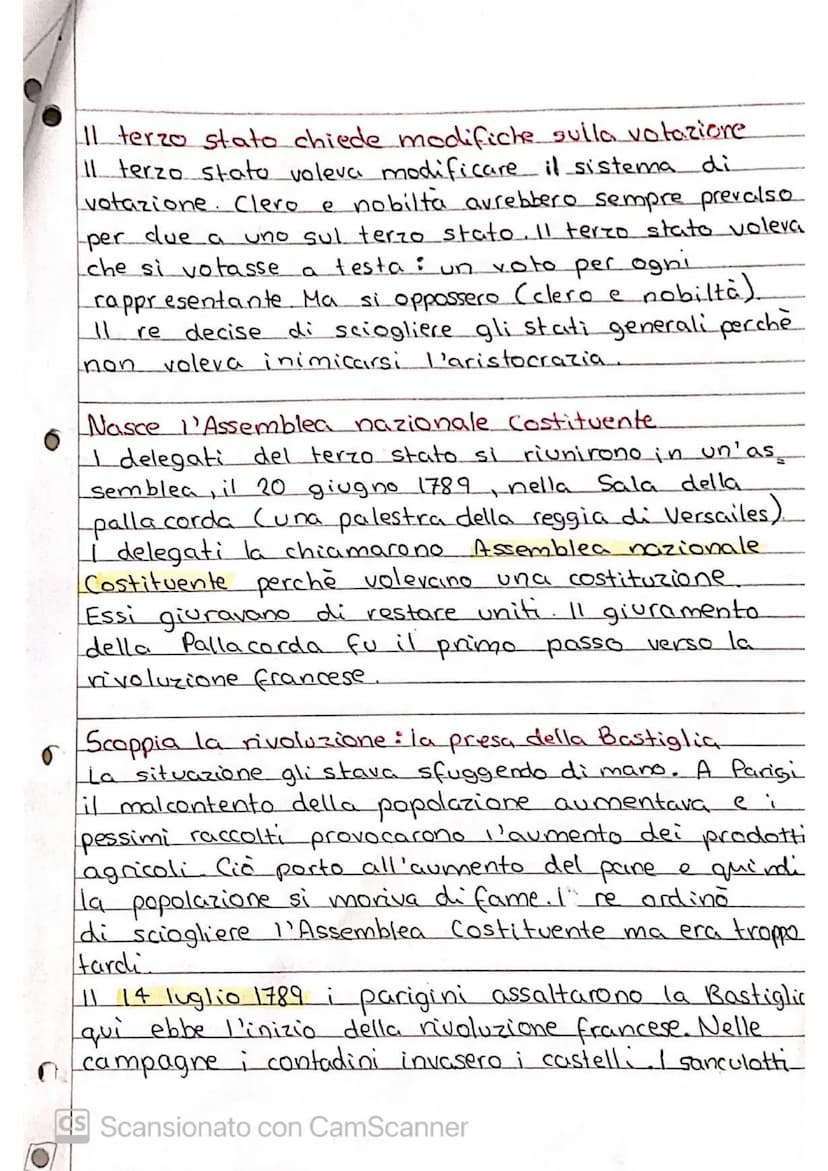 Il terzo stato chiede modifiche sulla votazione
Il terzo stato voleva modificare il sistema di
votazione. Clero e nobiltà avrebbero sempre prevalso
per due a uno sul terzo stato. Il terzo stato voleva
che si votasse a testa: un voto per ogni
rappresentante. Ma si oppossero (clero e nobiltà).
Il re decise di sciogliere gli stati generali perchè
non voleva inimicarsi l'aristocrazia.
Nasce l'Assemblea nazionale Costituente
I delegati del terzo stato si riunirono in un'as_
semblea, il 20 giugno 1789, nella Sala della
pallacorda (una palestra della reggia di Versailes)
I delegati la chiamarono Assemblea nazionale
Costituente perchè volevano una costituzione.
Essi giuravano di restare uniti. Il giuramento
della Pallacorda fu il primo passo verso la
rivoluzione francese.
Scoppia la rivoluzione: la presa della Bastiglia
La situazione gli stava sfuggendo di mano. A Parigi
il malcontento della popolazione aumentava e i
pessimi raccolti provocarono l'aumento dei prodotti
agricoli. Ciò porto all'aumento del pane e quindi
la popolazione si moriva di fame. I re ordinò
di sciogliere l'Assemblea Costituente ma era troppo
tardi.
Il 14 luglio 1789 i parigini assaltarono la Bastiglia
qui ebbe l'inizio della rivoluzione francese. Nelle
campagne i contadini invasero i castelli. I sanculotti
CS Scansionato con CamScanner